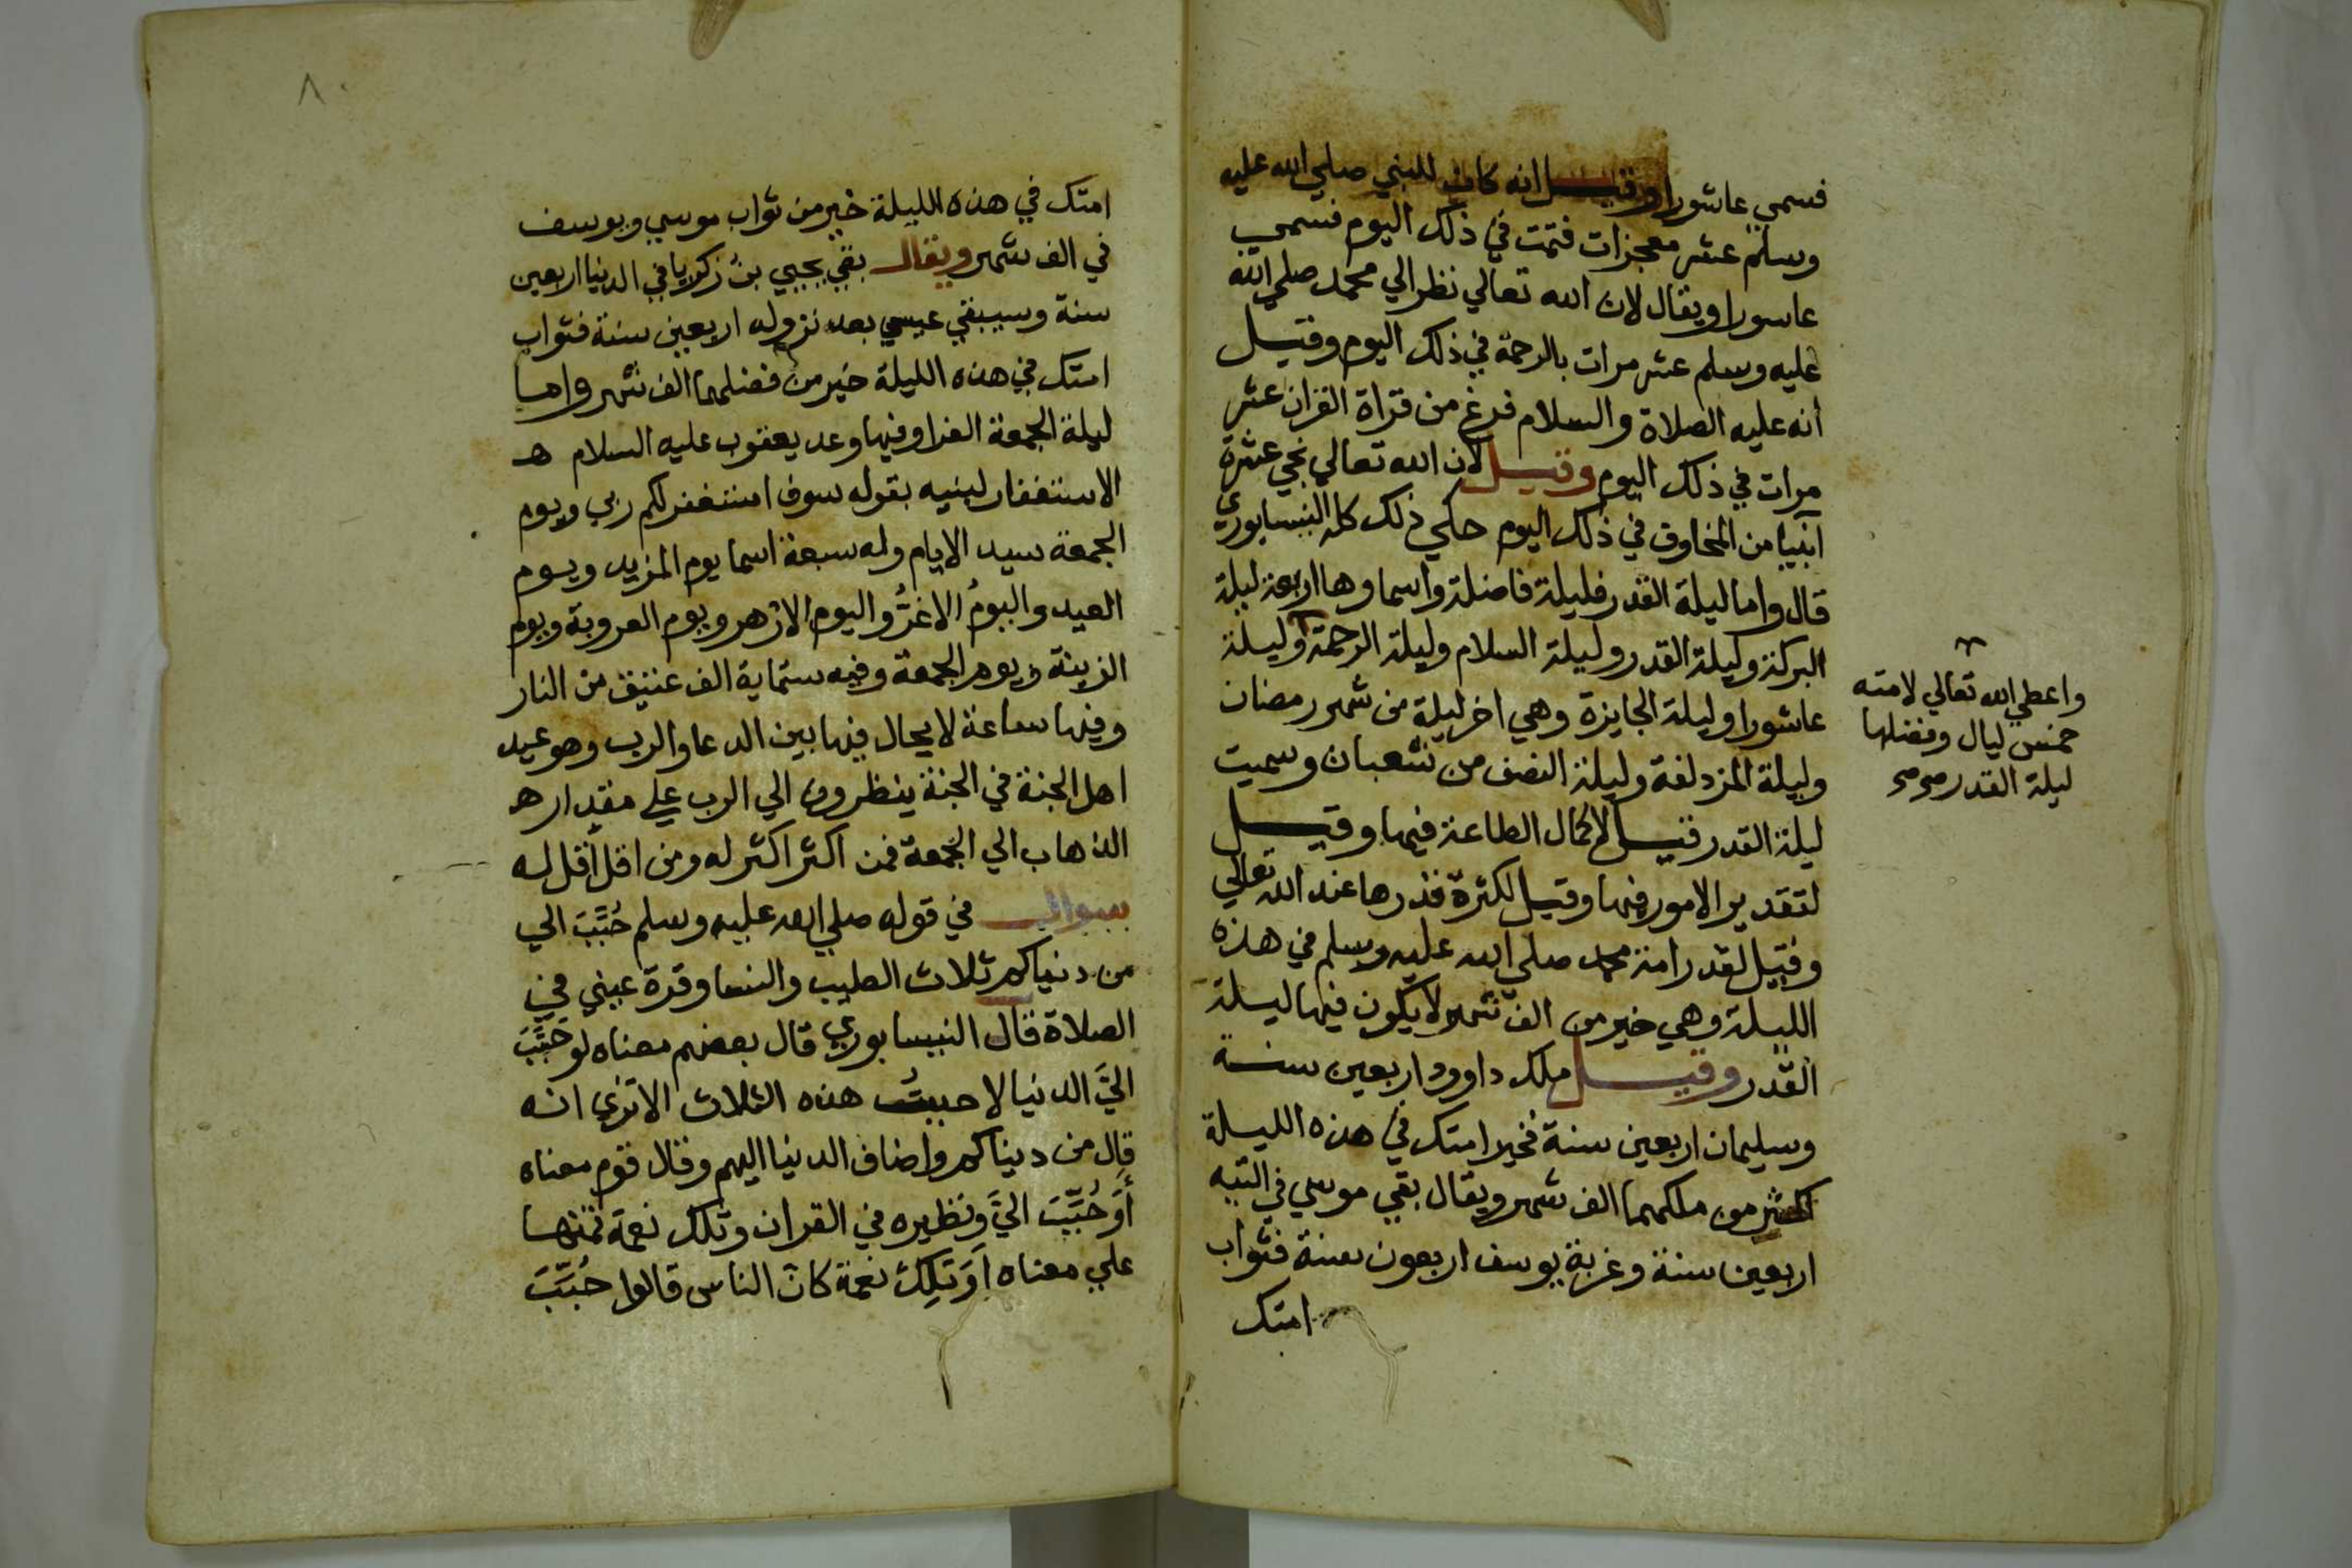 فسمي عاشورا وقيل انه كان للنبي صلي الله عليه
وسلم عشر معجزات فتمت في ذلك اليوم فسمي
عاسورا ويقال لان الله تعالي نظر الي محمد صلي الله
عليه وسلم عشر مرات بالرحمة في ذلك اليوم وقيل
انه عليه الصلاة والسلام فرغ من قراة القران عشر
مرات في ذلك اليوم وقيل لان الله تعالي نجي عشرة
انبيا من المخاوف في ذلك اليوم حكي ذلك كله النيسابوري
قال واما ليلة القدر فليلة فاضلة واسماوها اربعة ليلة
البركة وليلة القدر وليلة السلام وليلة الرحمة وليلة
عاشورا وليلة الجايزة وهي اخر ليلة من شهر رمضان
وليلة المزدلفة وليلة النصف من شعبان وسميت
ليلة القدر قيل لاكمال الطاعة فيها وقيل
لتقدير الامور فيها وقيل لكثرة قدرها عند الله تعالي
وقيل لقدر امة محمد صلي الله عليه وسلم في هذه
الليلة وهي خير من الف شهر لا يكون فيها ليلة
القدر وقيل ملك داوود اربعين سنة
وسليمان اربعين سنة فخير امتك في هذه الليلة
اكثر من ملكهما الف شهر ويقال بقي موسي في التيه
اربعين سنة وغربة يوسف اربعون سنة فثواب
امتك
واعطي الله تعالي لامته
خمس ليال وفضلها
ليلة القدر صح صح
٨٠
امتك في هذه الليلة خير من ثواب موسي ويوسف
في الف شهر ويقال بقي يحيي بن زكريا في الدنيا اربعين
سنة وسيبقي عيسي بعد نزوله اربعين سنة فثواب
امتك في هذه الليلة خير من فضلهما الف شهر واما
ليلة الجمعة الغرا وفيها وعد يعقوب عليه السلام هـ
الاستغفار لبنيه بقوله سوف استغفر لكم ربي ويوم
الجمعة سيد الايام وله سبعة اسما يوم المزيد ويوم
العيد واليومُ الاغرُّ واليوم الازهر ويوم العروبة ويوم
الزينة ويوم الجمعة وفيه ستماية الف عتيق من النار
وفيها ساعة لا يحال فيها بين الدعا والرب وهو عيد
اهل الجنة في الجنة ينظرون الي الرب علي مقدار هـ
الذهاب الي الجمعة فمن اكثر اكثر له ومن اقل اقل له
سوال في قوله صلي الله عليه وسلم حُبِّبَ الي
من دنياكم ثلاث الطيب والنسا وقرة عيني في
الصلاة قال النيسابوري قال بعضهم معناه لو حُبِّبَ
اليَّ الدنيا لاحببتُ هذه الثلاث الا تري انه
قال من دنياكم واضاف الدنيا اليهم وقال قوم معناه
أَوَ حُبِّبَ اليَّ ونظيره في القران وتلك نعمة تمنها
علي معناه اَوَ تِلكَ نعمة كانَ الناس قالوا حُبِّبَ